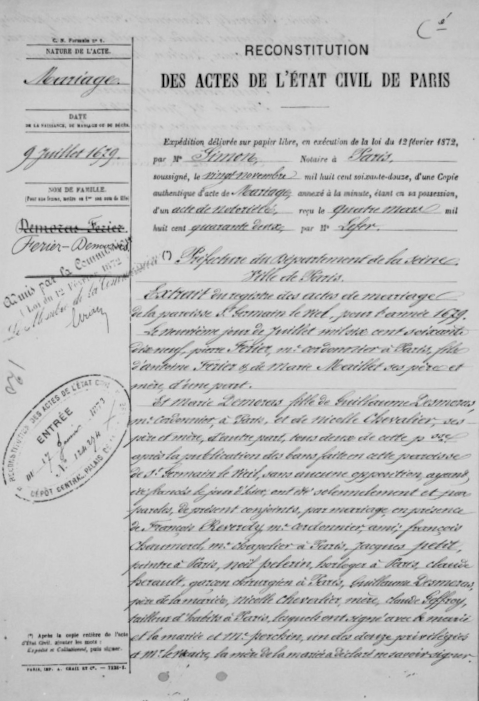 C. N. Formule nº 1.
NATURE DE L'ACTE.
Mariage
DATE
DE LA NAISSANCE, DU MARIAGE OU DU DÉCÈS.
9 Juillet 1679.
NOM DE FAMILLE.
Demoras Ferier
Ferier-Demoras
Admis par la Commission
(Loi du 12 Février 1872
Le Membre de la Commission
RECONSTITUTION DES ACTES DE L'ÉTAT CIVIL
ENTRÉE
DÉPÔT CENTRAL
(*) Après la copie entière de l'acte
d'État Civil, ajouter les mots :
Expédié et Collationné, puis signer.
PARIS, IMP. A. CHAIX ET Cie.
RECONSTITUTION
DES ACTES DE L'ÉTAT CIVIL DE PARIS
Expédition délivrée sur papier libre, en exécution de la loi du 12 février 1872,
par Me Simon, Notaire à Paris
soussigné, le vingt novembre mil huit cent soixante-douze, d'une Copie
authentique d'acte de Mariage, annexé à la minute, étant en sa possession,
d'un acte de notoriété reçu le quatre mars mil
huit cent quarante deux par Me
(*) Préfecture du Département de la Seine
Ville de Paris.
Extrait du registre des actes de mariage
de la paroisse St Germain le Viel, pour l'année 1679.
Le neuvième jour de Juillet mil six cent soixante
dix neuf, pierre Ferier, me cordonnier à Paris, fils
d'antoine Ferier & de marie Meullet ses père et
mère, d'une part.
Et marie Demoras fille de Guillaume Desmoras
me cordonnier, à Paris, et de nicolle Chevalier, ses
père et mère, d'autre part, tous deux de cette
après la publication des bans faite en cette paroisse
de St Germain le Vieil, sans aucune opposition, ayant
été fiancés le jour d'hier, ont été solennellement et par
paroles, de présent conjoints, par mariage, en présence
de François Reverdy, me cordonnier, ami; françois
Chaumard, me chapelier à Paris, jacques petit,
peintre à Paris, noël pelerin, horloger à Paris, claude
perault, garçon chirurgien à Paris, Guillaume Desmoras,
père de la mariée, nicolle Chevalier, mère, claude Geffroy,
tailleur d'habits à Paris, lesquels ont signé avec le marié
et la mariée et Me perchin, un des douze privilégiés
et Me le Maire, la mère de la mariée a déclaré ne savoir signer.